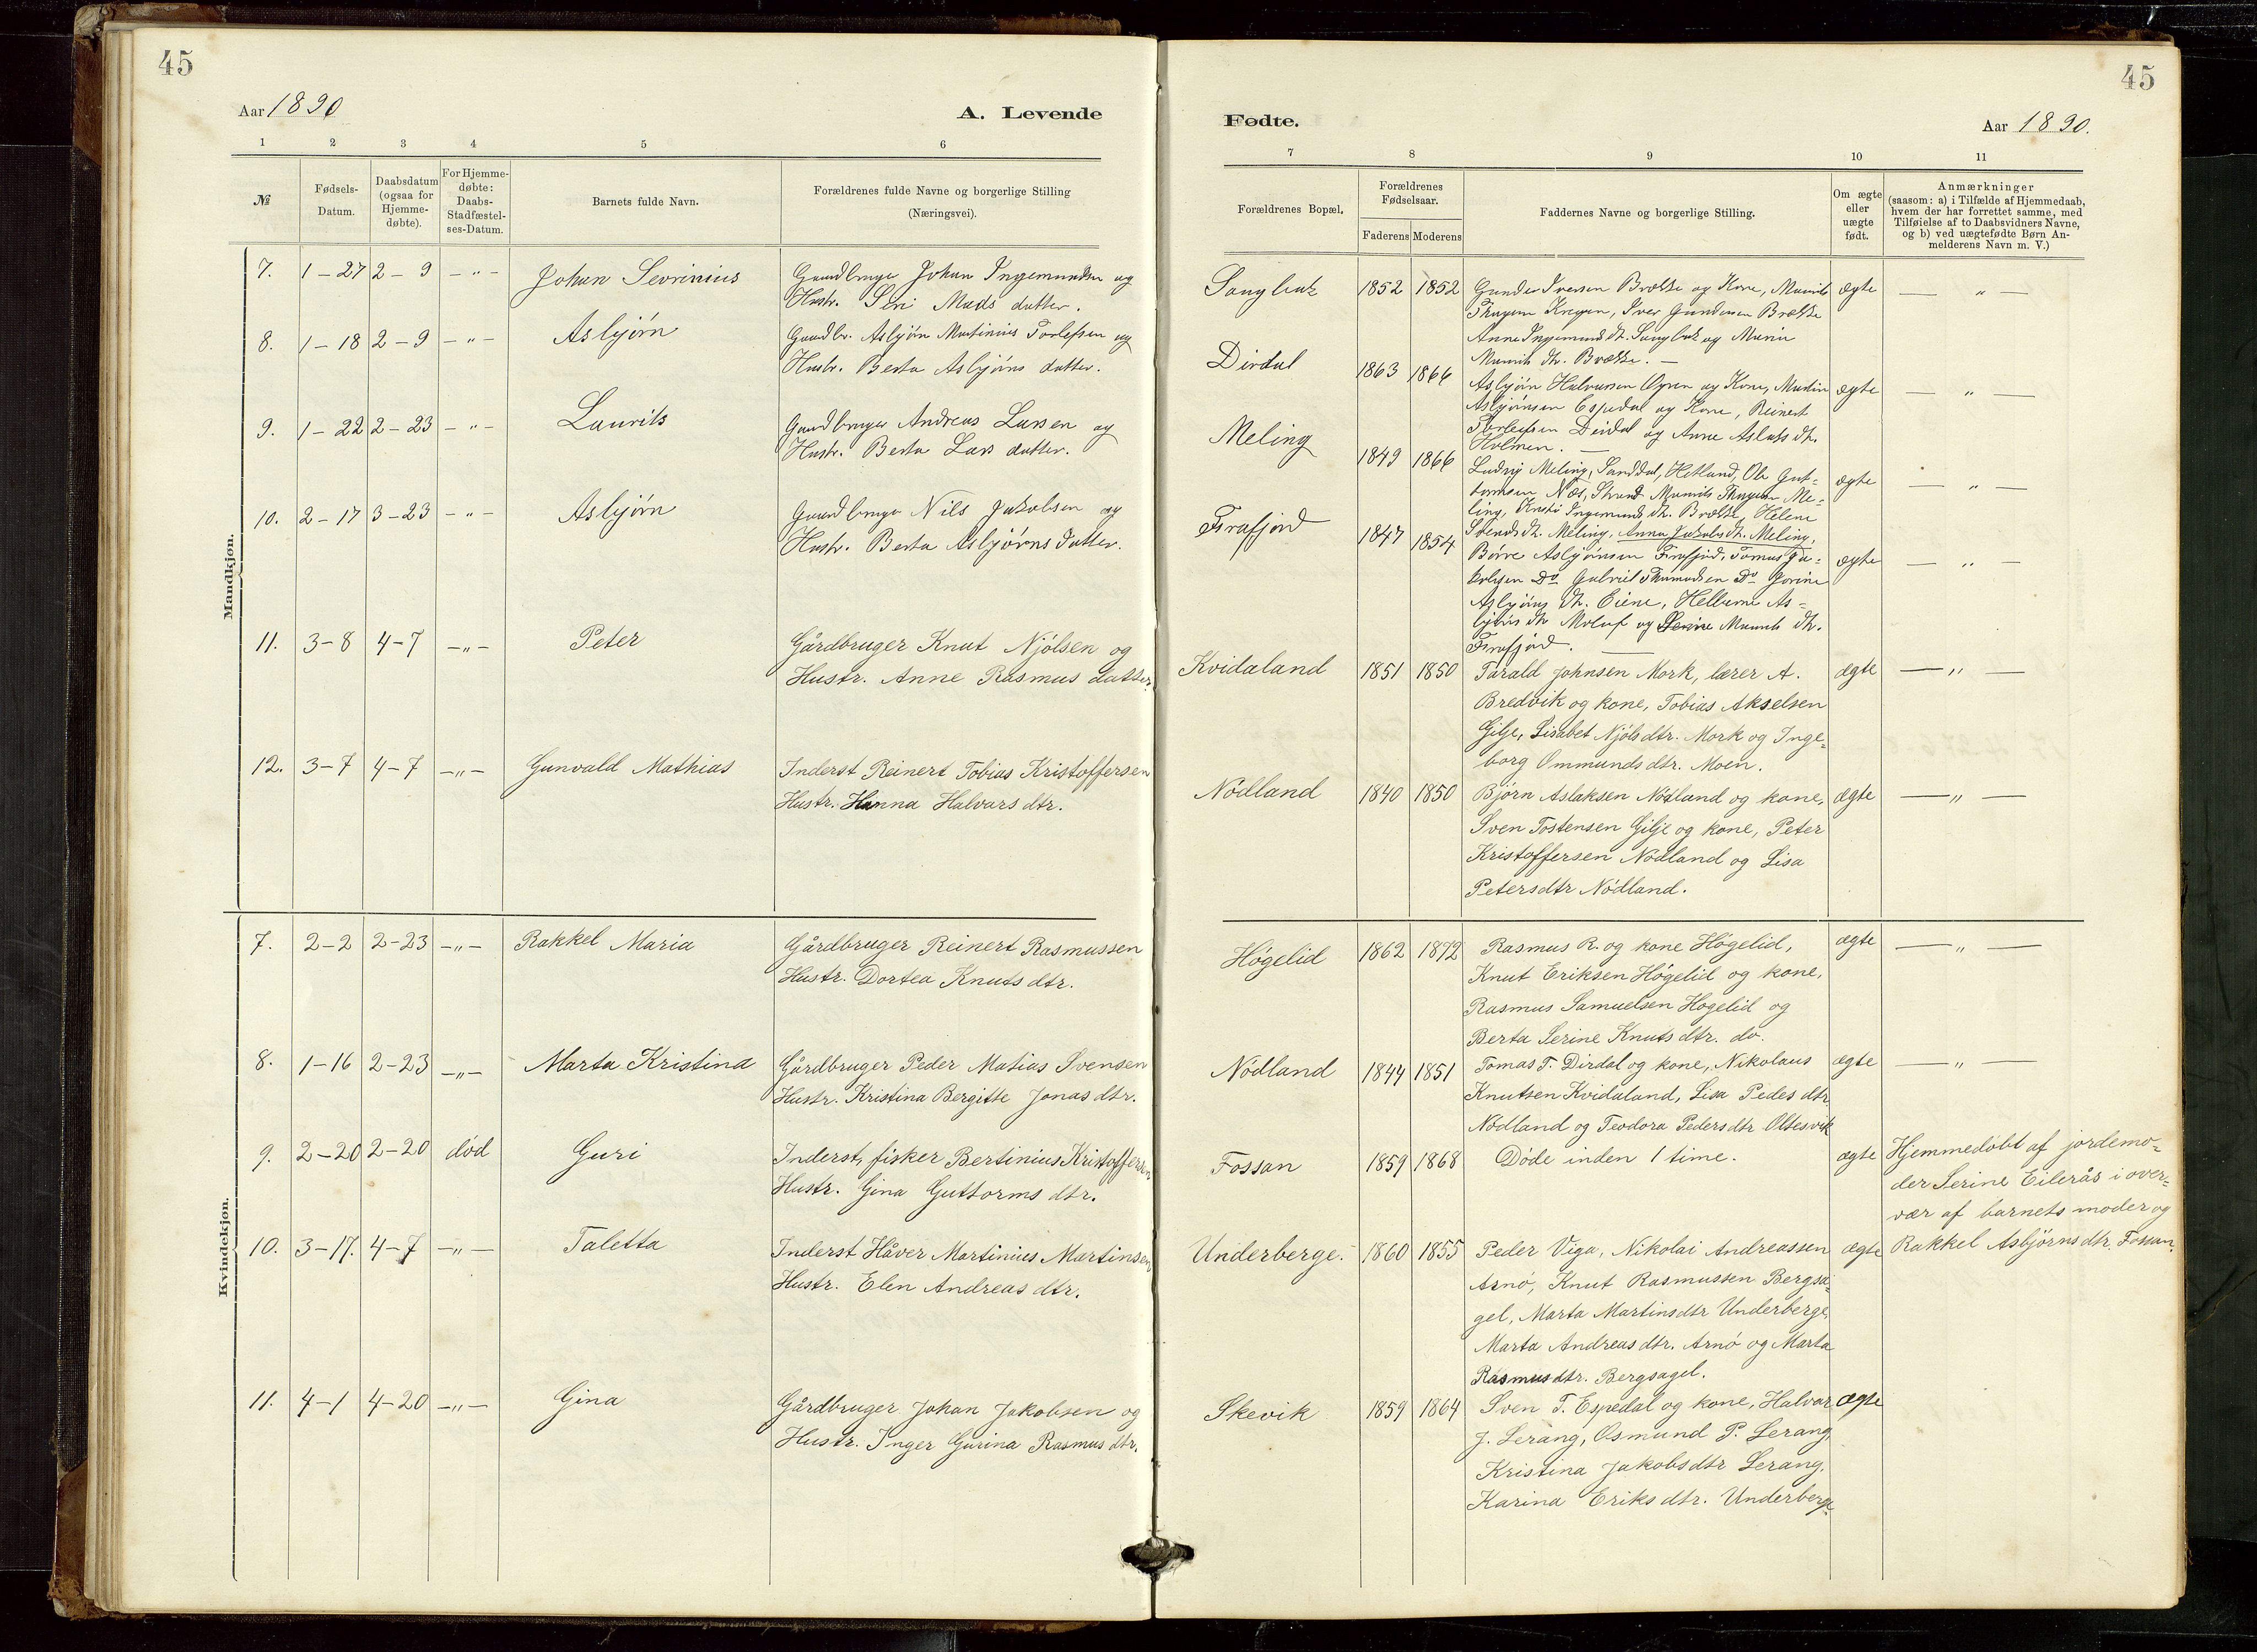 45
Aar 1890
A. Levende
1 2 3 4 5 6
№
Fødsels-
Datum.
Daabsdatum
(ogsaa for
Hjemme-
døbte).
For Hjemme-
døbte:
Daabs-
Stadfæstel-
ses-Datum.
Barnets fulde Navn.
Forældrenes fulde Navne og borgerlige Stilling
(Næringsvei).
Mandkjøn.
7. 1-27 2-9 -"- Johan Sevrinius
Gaardbruger Johan Ingemundsen og
Hustr. Siri Mads datter.
8. 1-18 2-9 -"- Asbjørn
Gaardbr. Asbjørn Martinius Torlefsen og
Hustr. Berta Asbjørns datter.
9. 1-22 2-23 -"- Laurits
Gaardbruger Andreas Larsen og
Hustr. Berta Lars datter.
10. 2-17 3-23 -"- Asbjørn
Gaardbruger Nils Jakobsen og
Hustr. Berta Asbjørns datter.
11. 3-8 4-7 -"- Peter
Gårdbruger Knut Njølsen og
Hustr. Anne Rasmus datter.
12. 3-7 4-7 -"- Gunvald Mathias
Inderst Reinert Tobias Kristoffersen
Hustr. Hanna Halvars dtr.
Kvindekjøn.
7. 2-2 2-23 -"- Rakkel Maria
Gårdbruger Reinert Rasmussen
Hustr. Dortea Knuts dtr.
8. 1-16 2-23 -"- Marta Kristina
Gårdbruger Peder Matias Svensen
Hustr. Kristina Bergitte Jonas dtr.
9. 2-20 2-20 død Guri
Inderst, fisker Bertinius Kristoffersen
Hustr. Gina Guttorms dtr.
10. 3-17. 4-7 -"- Taletta
Inderst Håver Martinius Martinsen
Hustr. Elen Andreas dtr.
11. 4-1 4-20 -"- Gina
Gårdbruger Johan Jakobsen og
Hustr. Inger Gurina Rasmus dtr.
45
Fødte.
Aar 1890.
7 8 9 10 11
Forældrenes Bopæl.
Forældrenes
Fødselsaar.
Faderens Moderens
Faddernes Navne og borgerlige Stilling.
Om ægte
eller
uægte
født.
Anmærkninger
(saasom: a) i Tilfælde af Hjemmedaab,
hvem der har forrettet samme, med
Tilføielse af to Daabsvidners Navne,
og b) ved uægtefødte Børn An-
melderens Navn m. V.)
1852 1852 Gunder Iversen Brække og Kone, ægte — " —
Iver Gundersen Brække
Brække. —
Dirdal 1863 1866
Asbjørn Halvarsen og Kone, Martin ægte — " —
Asbjørnsen Espedal og Kone, Reinert
Torlefsen Dirdal og Anne Aslaks dt.
Holmen. —
Meling 1849 1866
Ludvig Meling, Hetland, Ole Gut- ægte — " —
tormsen Næs, Strand Me-
ling, Ingemunds dt. Brække, Helene
Svends dt. Meling, Anna Jakobs dt. Meling,
Frafjord 1847 1854
Børre Asbjørnsen Frafjord, Tomas Ja- ægte — " —
kobsen Do Gabriel Do Gorine
Asbjørns dt. Eiene, As-
bjørns dt. Molaf og Serine dt.
Frafjord. —
Kvidaland 1851 1850 Tarald Johnsen Mork, lærer A. ægte — " —
Bredvik og kone, Tobias Akselsen
Gilje, Lisabet Njøls dtr. Mork og Inge-
borg Ommunds dtr. Moen.
Nødland 1840 1850 Bjørn Aslaksen Nødland og kone, ægte — " —
Sven Tostensen Gilje og kone, Peter
Kristoffersen Nødland og Lisa
Petersdtr Nødland.
Høgelid 1862 1872 Rasmus R. og kone Høgelid, ægte — " —
Knut Eriksen Høgelid og kone,
Rasmus Samuelsen Høgelid og
Berta Serine Knuts dtr. do.
Nødland 1844 1851 Tomas T. Dirdal og kone, Nikolaus ægte — " —
Knutsen Kvidaland, Lisa Pedes dtr
Nødland og Teodora Peders dtr Oltesvik
Fossan 1859 1868 Døde inden 1 time. ægte
Hjemmedøbt af jordemo-
der Serine Eilerås i over-
vær af barnets moder og
Rakkel Asbjørns dtr. Fossan.
Underberge. 1860 1855 Peder Viga, Nikolai Andreassen ægte
Arnø, Knut Rasmussen Bergsa-
gel, Marta Martinsdtr Underberge,
Marta Andreas dtr. Arnø og Marta
Rasmusdtr. Bergsagel.
Skevik 1859 1864 Sven T. Espedal og kone, Halvar ægte
J. Lerang, Osmund P. Lerang,
Kristina Jakobsdtr Lerang,
Karina Eriks dtr. Underberge.